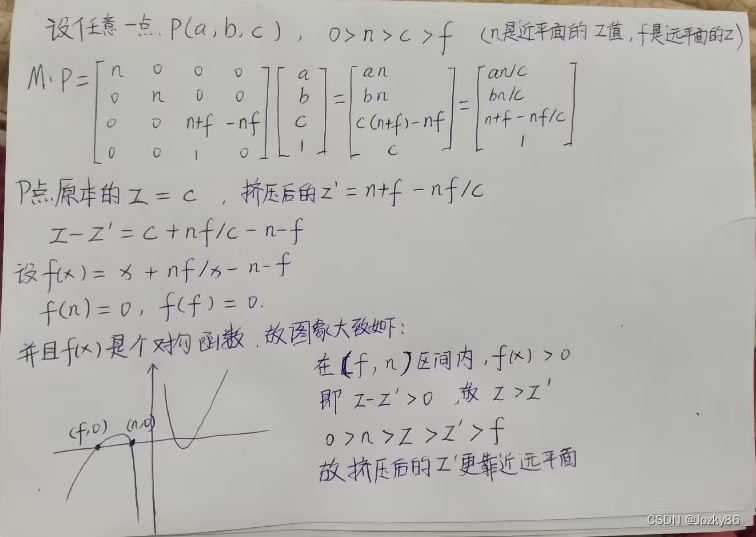 设任意一点 P(a,b,c), 0>n>c>f (n是近平面的Z值,f是远平面的Z)
M·P = [n 0 0 0; 0 n 0 0; 0 0 n+f -nf; 0 0 1 0] [a; b; c; 1] = [an; bn; c(n+f)-nf; c] = [an/c; bn/c; n+f-nf/c; 1]
P点原本的 Z = c , 挤压后的Z' = n+f - nf/c
Z-Z' = c+nf/c-n-f
设f(x) = x + nf/x - n-f
f(n) = 0, f(f) = 0.
并且f(x)是个对勾函数,故图象大致如下:
在(f,n)区间内,f(x)>0
即 Z-Z'>0 故 Z>Z'
0>n>Z>Z'>f
故挤压后的Z'更靠近远平面
(f,0) (n,0)
CSDN @Jozky86